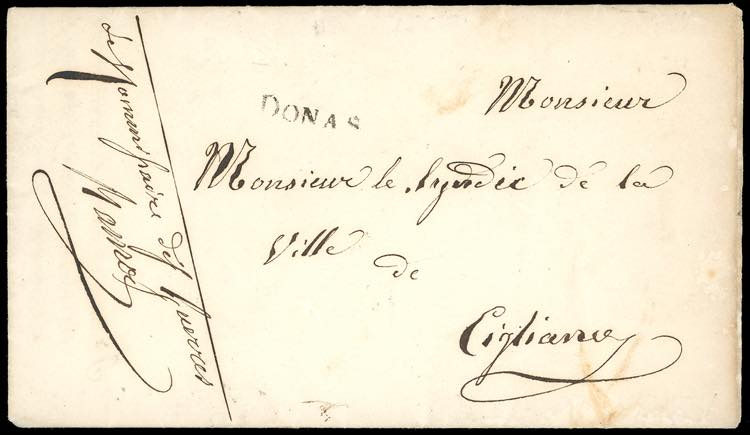 DONAS
Monsieur
Monsieur le Syndic de la
Ville
de
Cigliano
Le Commissaire des Guerres